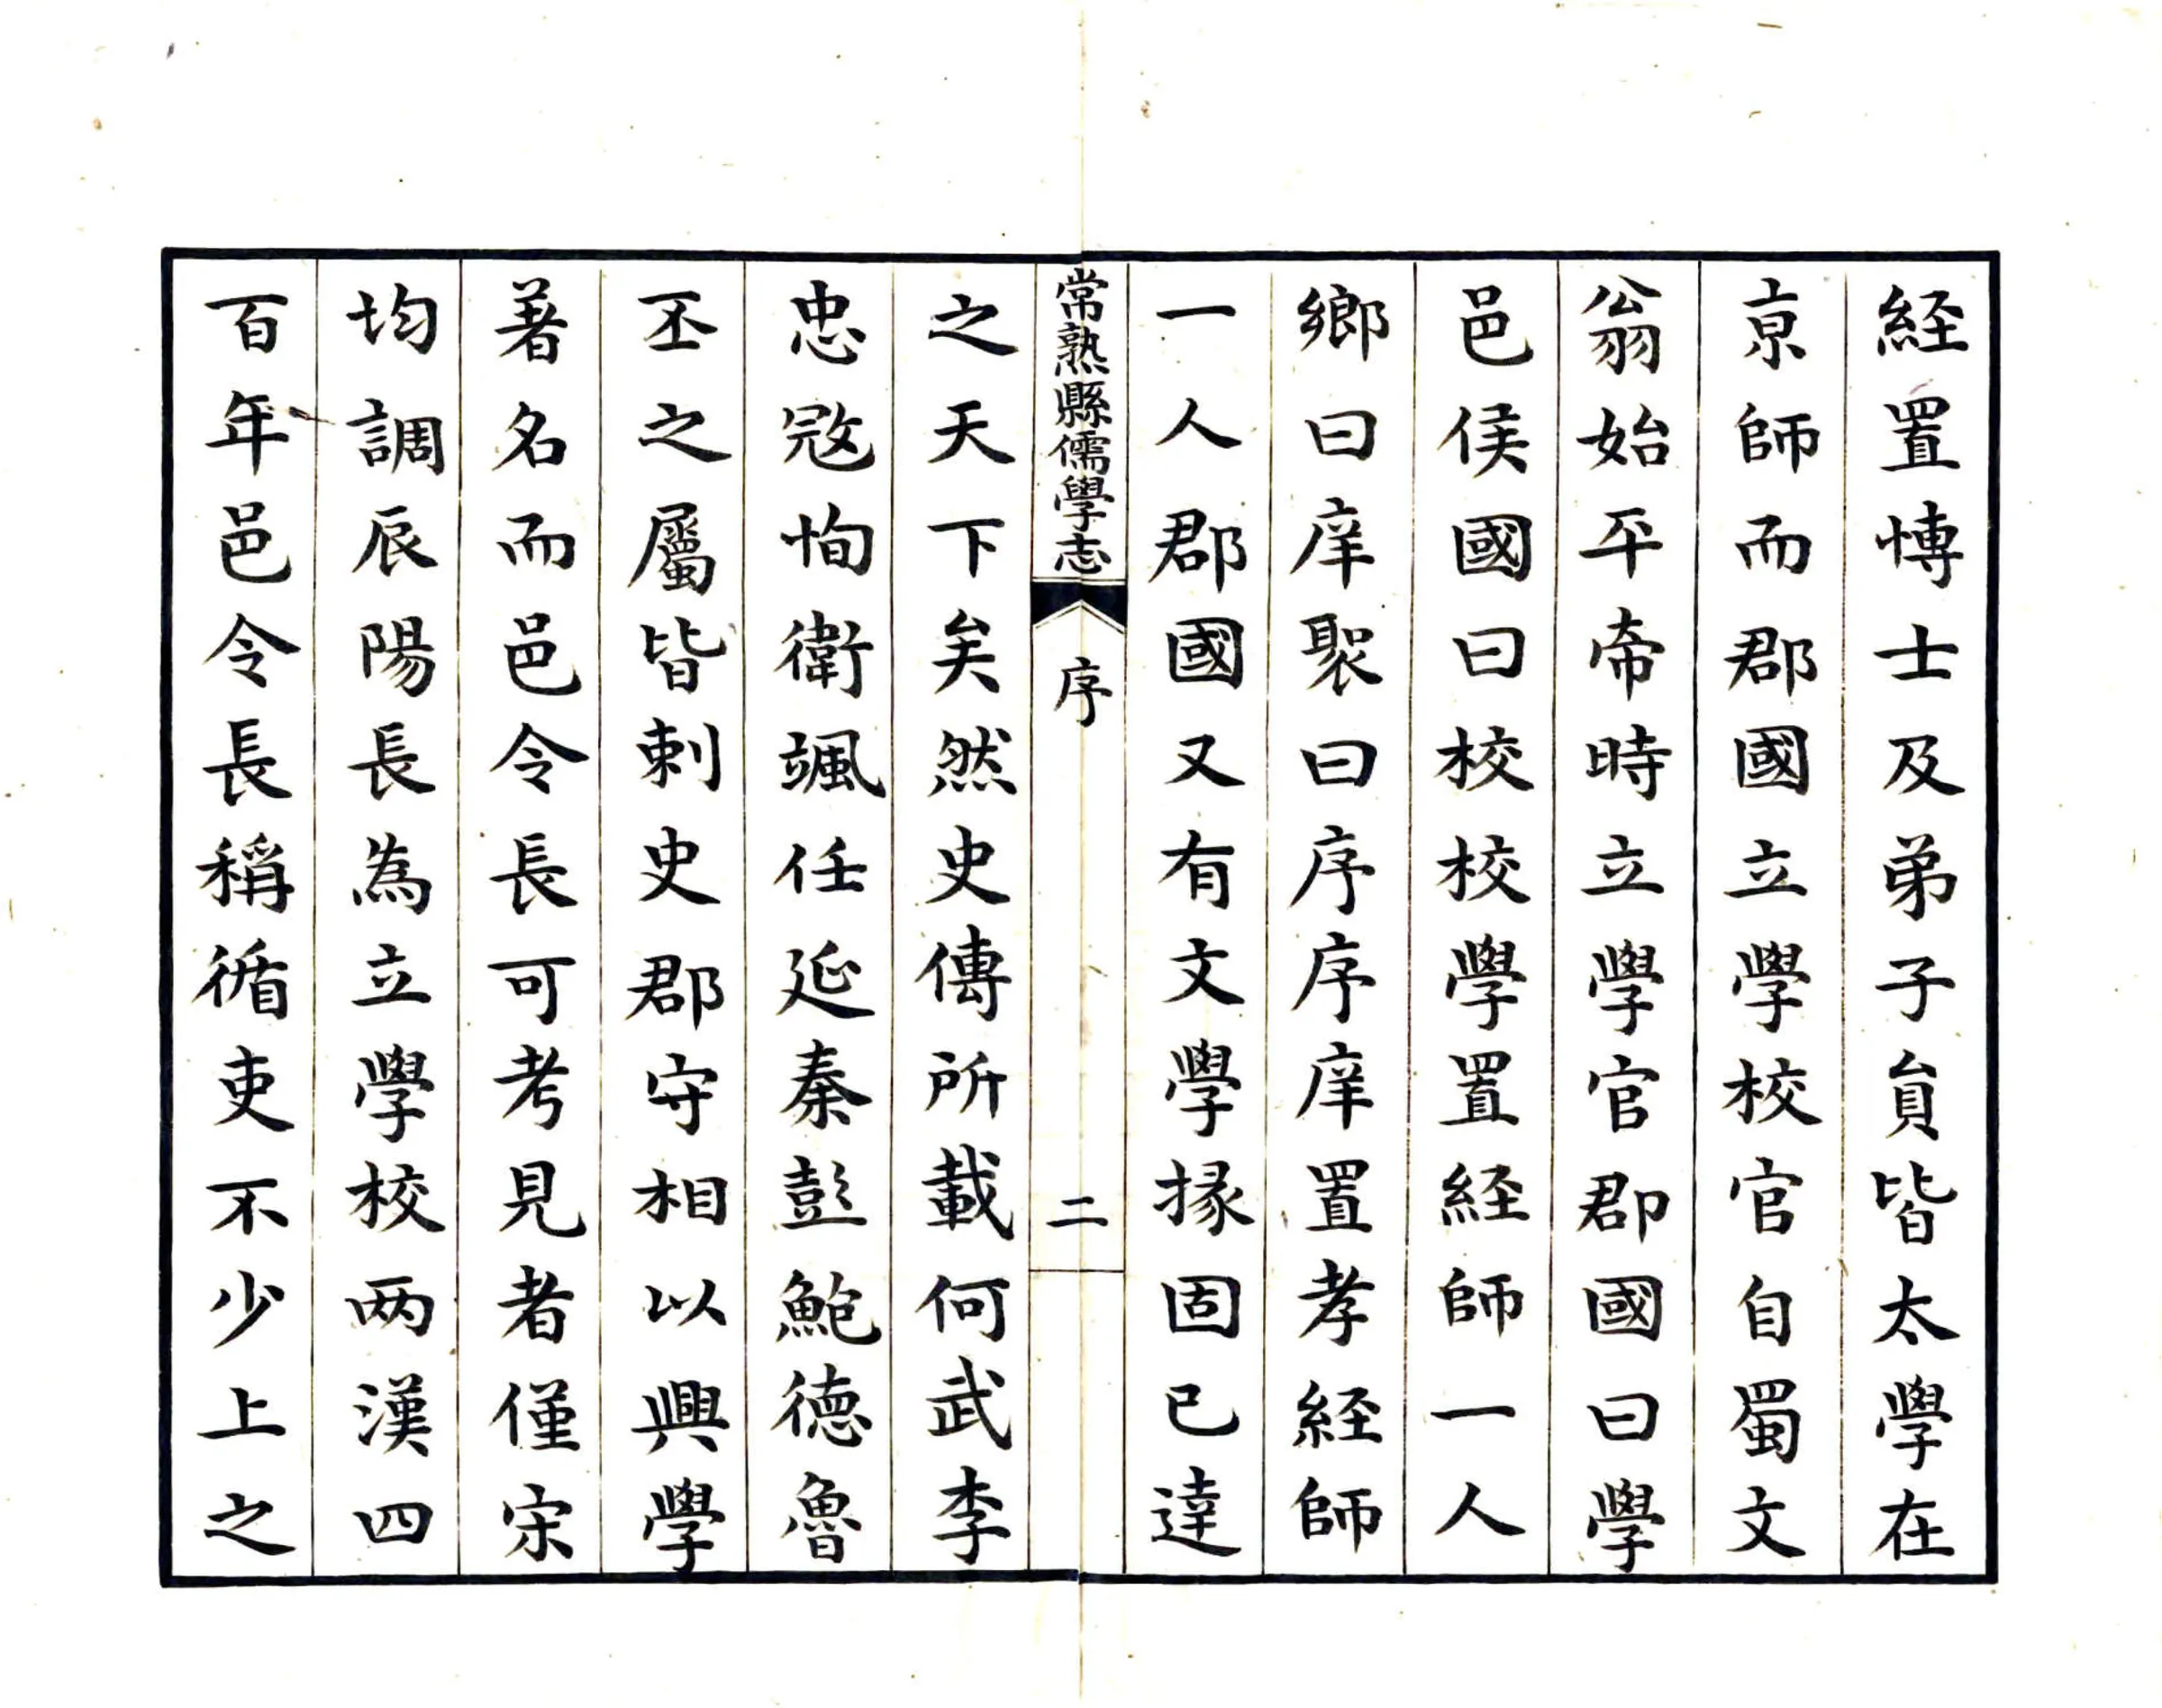 経置博士及弟子員皆太學在
京師而郡國立學校官自蜀文
翁始平帝時立學官郡國曰學
邑侯國曰校校學置経師一人
鄉曰庠聚曰序序庠置孝経師
一人郡國又有文學掾固已達
常熟縣儒學志 序 二
之天下矣然史傳所載何武李
忠寇恂衛颯任延秦彭鮑德魯
丕之屬皆刺史郡守相以興學
著名而邑令長可考見者僅宋
均調辰陽長為立學校两漢四
百年邑令長稱循吏不少上之